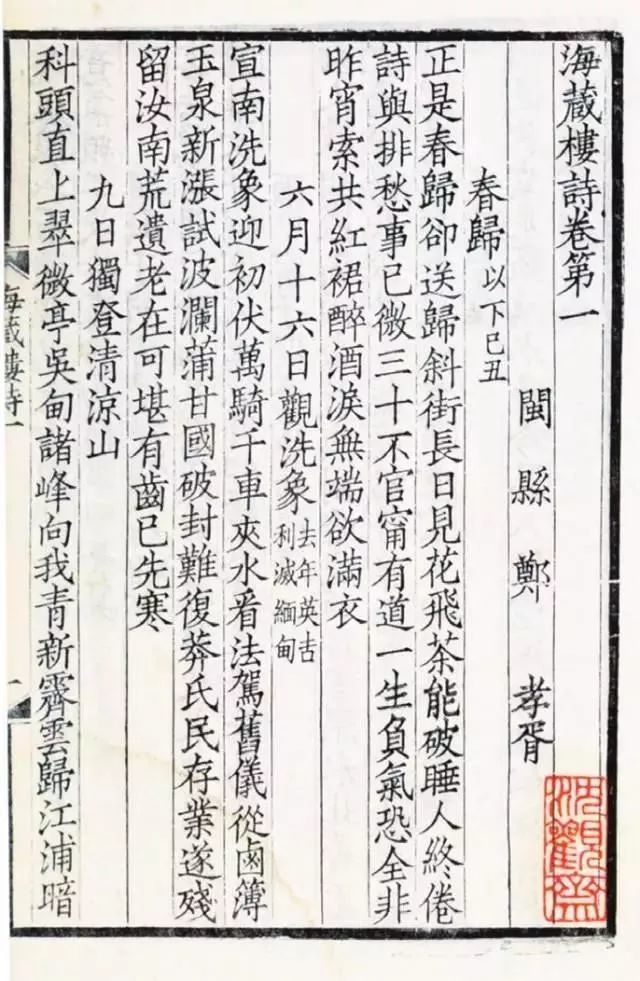 海藏樓詩卷第一
閩縣鄭孝胥
春歸以下己丑
正是春歸卻送歸斜街長日見花飛茶能破睡人終倦
詩與排愁事已微三十不官甯有道一生負氣恐全非
昨宵索共紅裙醉酒淚無端欲滿衣
六月十六日觀洗象去年英吉利滅緬甸
宣南洗象迎初伏萬騎千車夾水看法駕舊儀從鹵簿
玉泉新漲試波瀾蒲甘國破封難復莽氏民存業遂殘
留汝南荒遺老在可堪有齒已先寒
九日獨登清涼山
科頭直上翠微亭吳甸諸峰向我青新霽雲歸江浦暗
海藏樓詩一
一